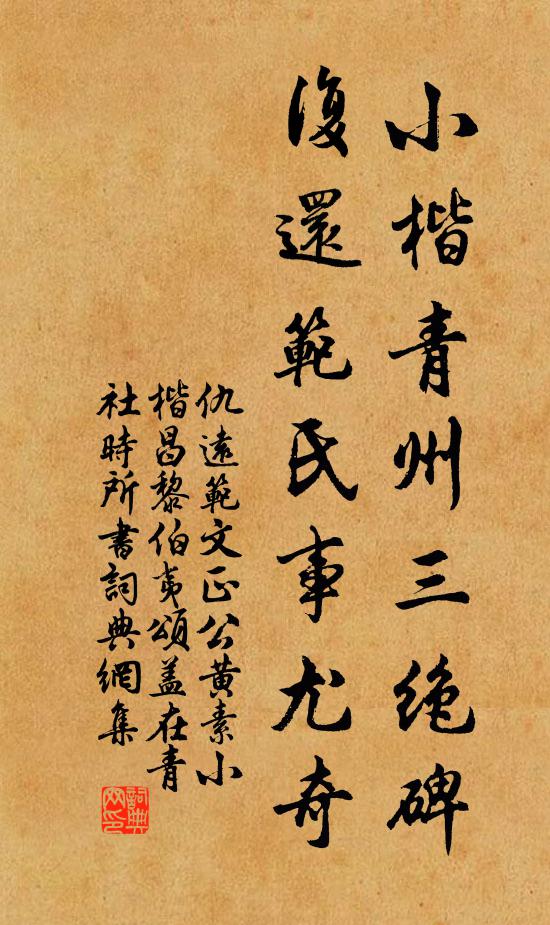 小楷青州三绝碑
復還範氏事尤奇
仇遠範文正公黄素小
楷昌黎伯夷頌盖在青
社時所書詞典網集
詞典網印